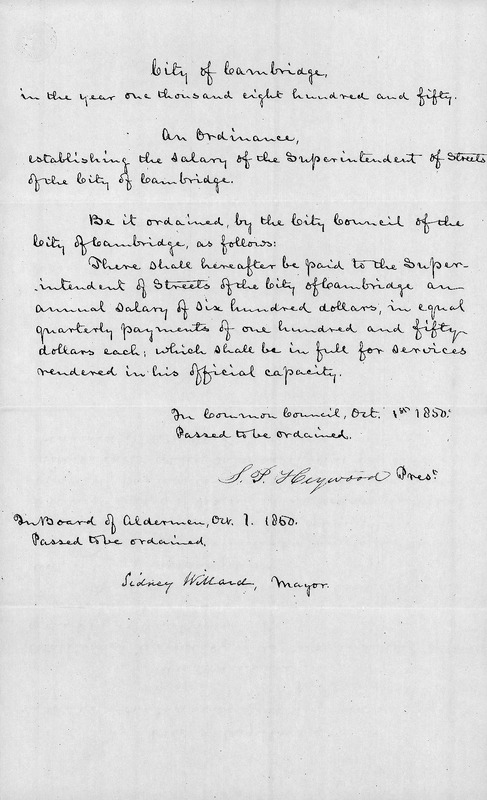 City of Cambridge,
in the year one thousand eight hundred and fifty.
An Ordinance,
establishing the Salary of the Superintendent of Streets
of the City of Cambridge.
Be it ordained, by the City Council of the
City of Cambridge, as follows:
There shall hereafter be paid to the Super-
-intendent of Streets of the City of Cambridge an
annual Salary of Six hundred dollars, in equal
quarterly payments of one hundred and fifty
dollars each; which shall be in full for services
rendered in his official capacity.
In Common Council, Oct. 1st 1850.
Passed to be ordained.
S. P. Heywood Prest.
In Board of Aldermen, Oct. 1. 1850.
Passed to be ordained.
Sidney Willard, Mayor.